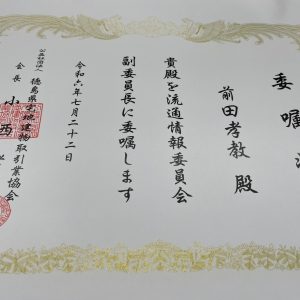 委嘱
前田孝教 殿
貴殿を流通情報委員会
副委員長に委嘱します
令和六年七月二十二日
公益社団法人
徳島県宅地建物取引業協会
会長 小西